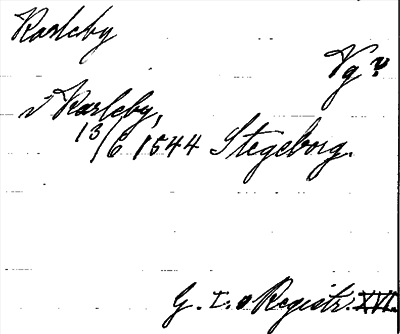 Karleby
Vg?
i Karleby,
13/6 1544 Stegeborg.
G. I:s Registr. XVI.